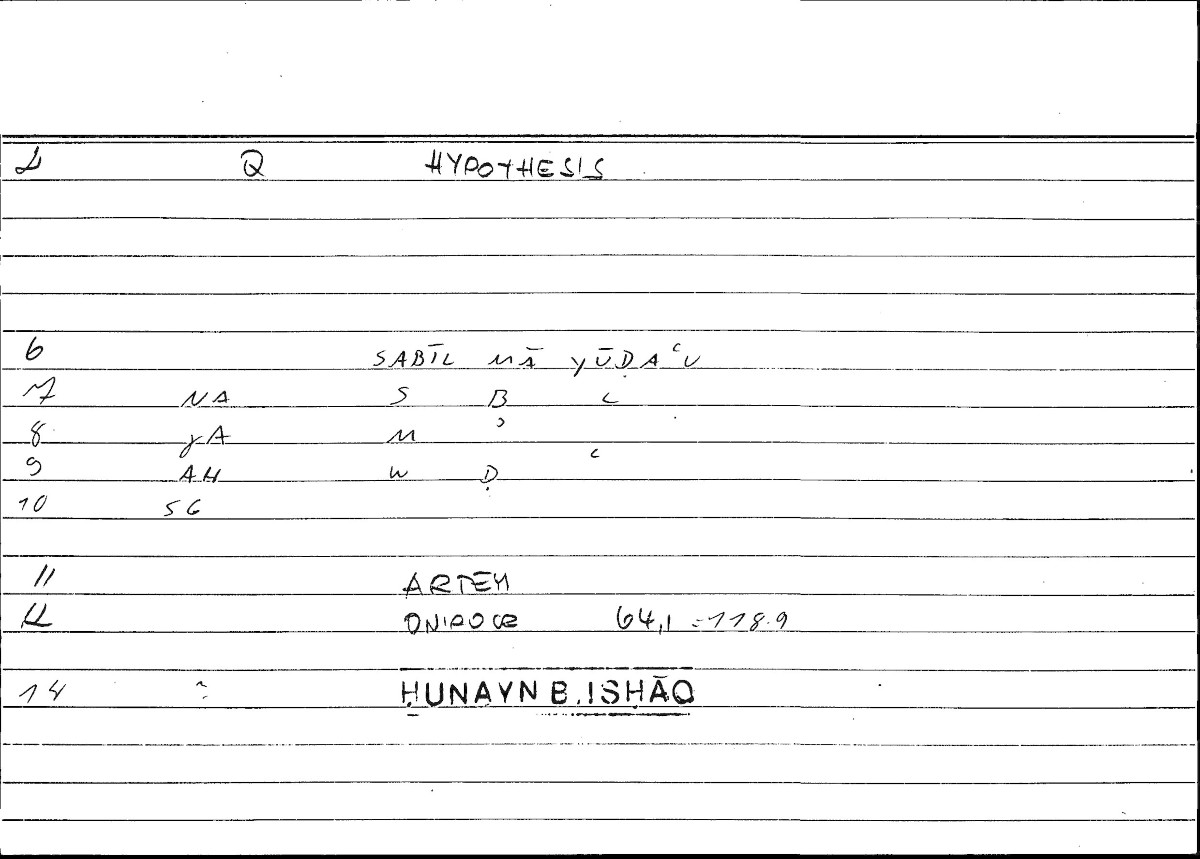 2 Q HYPOTHESIS
6 SABĪL MĀ YŪḌAʿU
7 NA S B L
8 γA M ʾ
9 AH W Ḍ ʿ
10 SG
11 ARTEM
12 ONIROCR 64,1 = 118.9
14 ḤUNAYN B. ISḤĀQ